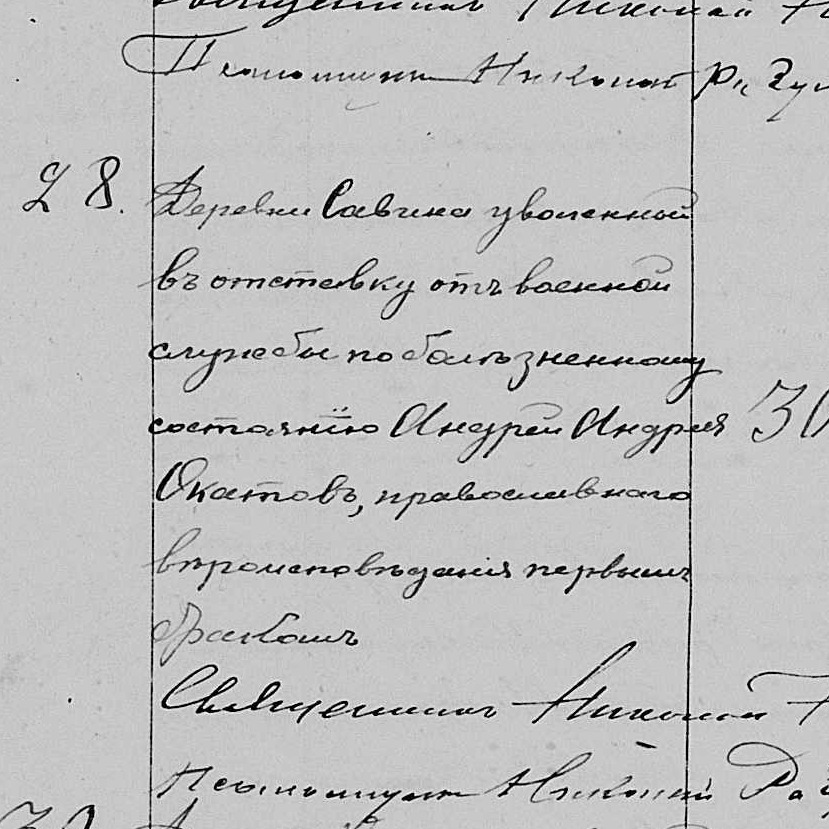 Священникъ Николай
Псаломщикъ Николай Ра
28.
Деревни Савина уволенной
въ отставку отъ военной
службы по болѣзненному
состоянію Андрей Андреев
Окатовъ, православнаго
вѣроисповѣданія первымъ
бракомъ
30
Священникъ Николай
Псаломщикъ Николай Ра